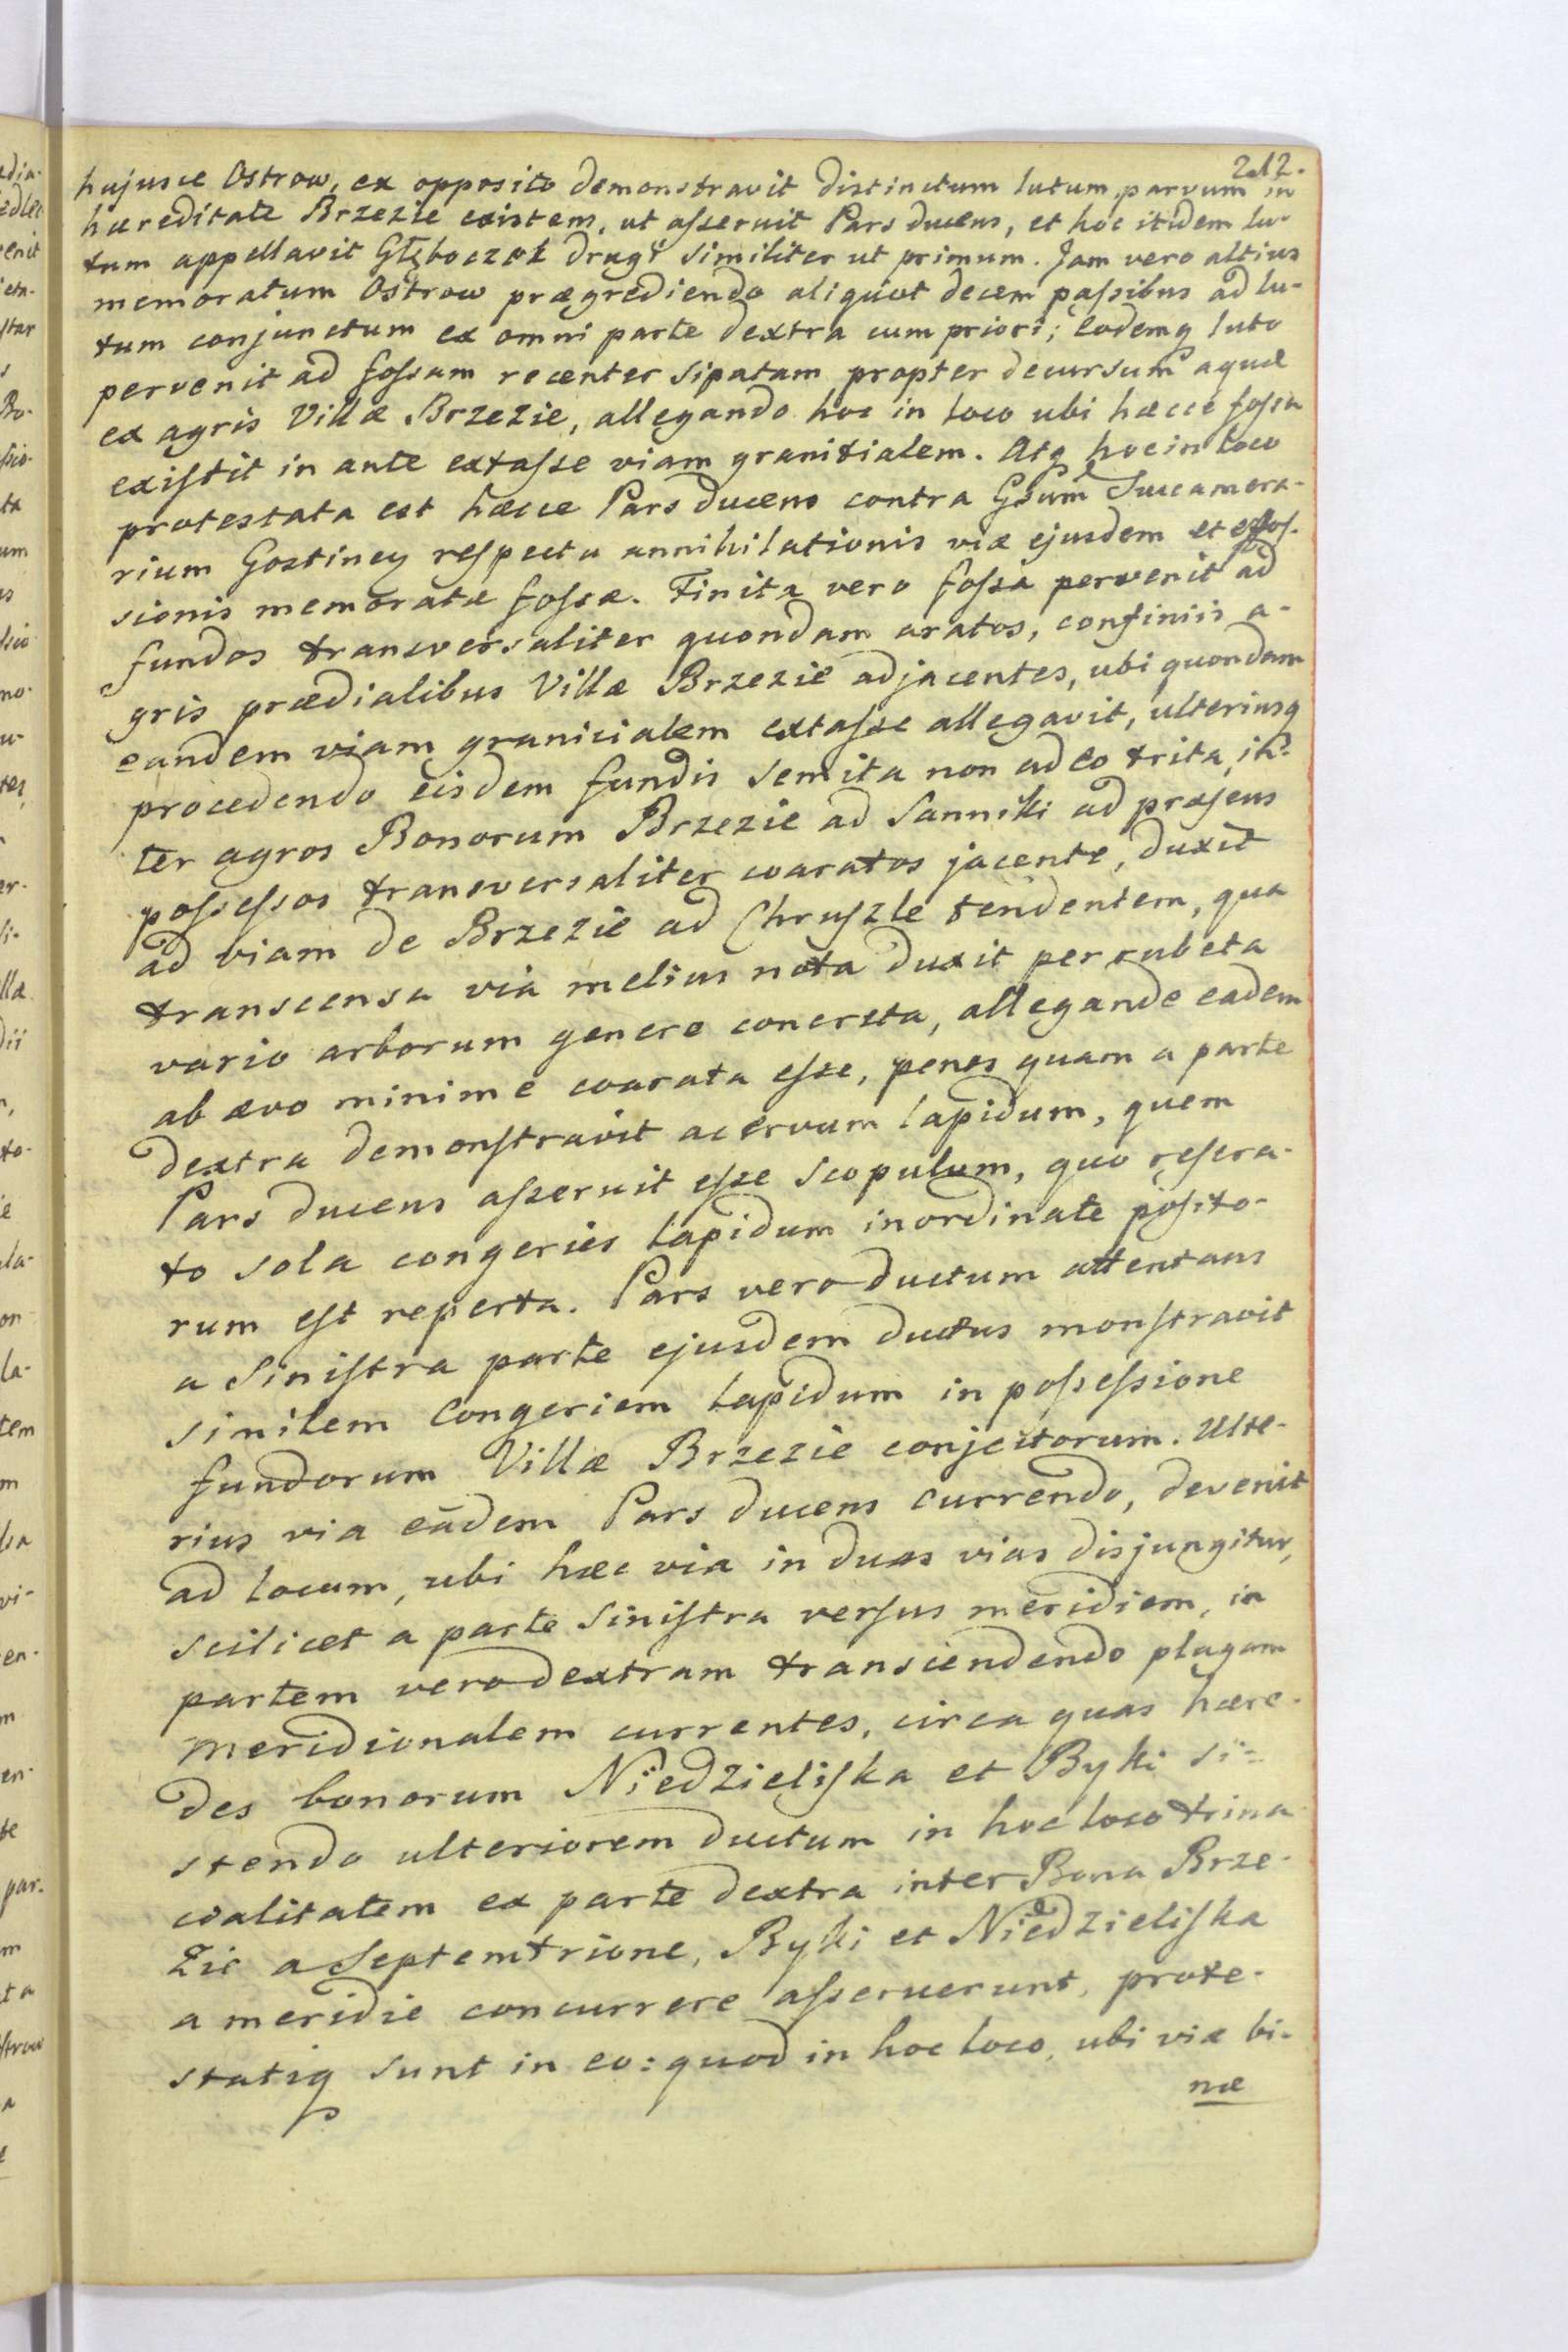 212.
hujusce Ostrow, ex opposito demonstravit distinctum lutum parvum in
hæreditate Brzezie existens, ut asseruit Pars ducens, et hoc itidem lu-
tum appellavit Głęboczek drugi similiter ut primum. Jam vero altius
memoratum Ostrow prægrediendo aliquot decem passibus ad lu-
tum conjunctum ex omni parte dextra cum priori; eodemq luto
pervenit ad fossam recenter sipatam propter decursum aquæ
ex agris Villæ Brzezie, allegando hoc in loco ubi hæcce fossa
existit in ante extasse viam granitialem. Atq hoc in loco
protestata est hæcce Pars ducens contra Gsum Succamera-
rium Gostinen respectu annihilationis viæ ejusdem et effos-
sionis memoratæ fossæ. Finita vero fossa pervenit ad
fundos transversaliter quondam aratos, confiniis a-
gris prædialibus Villæ Brzezie adjacentes, ubi quondam
eandem viam granicialem extasse allegavit, ulteriusq
procedendo eisdem fundis semita non adeo trita, in-
ter agros Bonorum Brzezie ad Sanniki ad præsens
possessos transversaliter coaratos jacente, duxit
ad viam de Brzezie ad Chruszle tendentem, qua
transcensa via melius nota duxit per rubeta
vario arborum genere concreta, allegando eadem
ab ævo minime coarata esse, penes quam a parte
dextra demonstravit acervum lapidum, quem
Pars ducens asseruit esse scopulum, quo resera-
to sola congeries lapidum inordinate posito-
rum est reperta. Pars vero ductum attentans
a sinistra parte ejusdem ductus monstravit
similem congeriem lapidum in possessione
fundorum Villæ Brzezie conjectorum. Ulte-
rius via eadem Pars ducens currendo, devenit
ad locum, ubi hæc via in duas vias disjungitur,
scilicet a parte sinistra versus meridiem, in
partem vero dextram transcendendo plagam
meridionalem currentes, circa quas hære-
des bonorum Niedzieliska et Byki si-
stendo ulteriorem ductum in hoc loco trina
coalitatem ex parte dextra inter Bona Brze-
zie a Septemtrione, Byki et Niedzieliska
a meridie concurrere asseruerunt, prote-
statiq sunt in eo: quod in hoc loco, ubi viæ bi-
næ